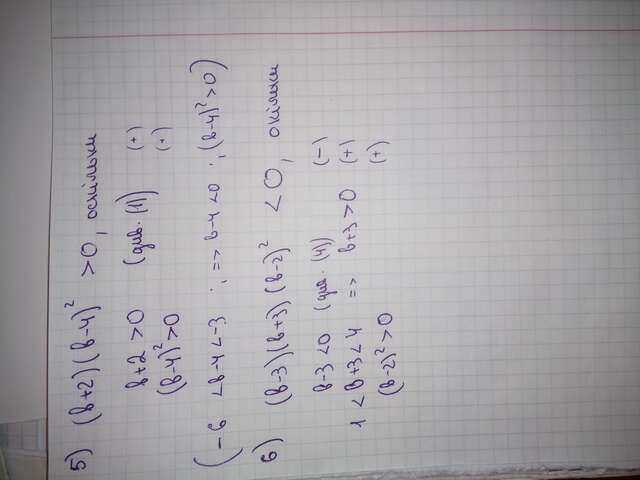 5) (в+2)(в-4)² >0, оскільки
в+2 >0 (див. (1)) (+)
(в-4)² >0 (+)
(-6 <в-4 <-3 ; => в-4 <0 ; (в-4)² >0)
6) (в-3)(в+3)(в-2)² <0, окільки
в-3 <0 (див. (4)) (-)
1 < в+3 < 4 => в+3 >0 (+)
(в-2)² >0 (+)